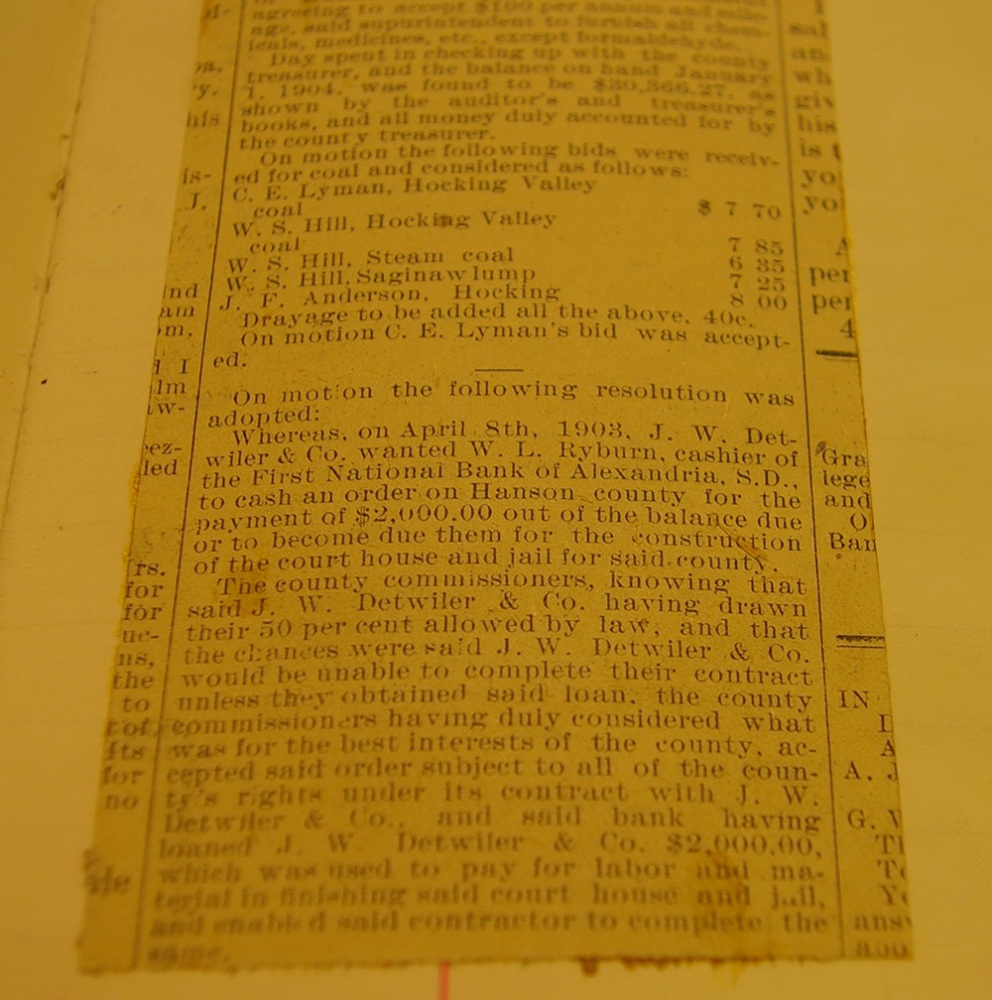 agreeing to accept $100 per annum and mile-
age, said superintendent to furnish all chem-
icals, medicines, etc., except formaldehyde.
Day spent in checking up with the county
treasurer, and the balance on hand January
1, 1904, was found to be $30,366.27, as
shown by the auditor's and treasurer's
books, and all money duly accounted for by
the county treasurer.
On motion the following bids were receiv-
ed for coal and considered as follows:
C. E. Lyman, Hocking Valley
coal $ 7 70
W. S. Hill, Hocking Valley
coal 7 85
W. S. Hill, Steam coal 6 35
W. S. Hill, Saginaw lump 7 25
J. F. Anderson, Hocking 8 00
Drayage to be added all the above, 40c.
On motion C. E. Lyman's bid was accept-
ed.
On motion the following resolution was
adopted:
Whereas, on April 8th, 1903, J. W. Det-
wiler & Co. wanted W. L. Ryburn, cashier of
the First National Bank of Alexandria, S.D.,
to cash an order on Hanson county for the
payment of $2,000.00 out of the balance due
or to become due them for the construction
of the court house and jail for said county.
The county commissioners, knowing that
said J. W. Detwiler & Co. having drawn
their 50 per cent allowed by law, and that
the chances were said J. W. Detwiler & Co.
would be unable to complete their contract
unless they obtained said loan, the county
commissioners having duly considered what
was for the best interests of the county, ac-
cepted said order subject to all of the coun-
ty's rights under its contract with J. W.
Detwiler & Co., and said bank having
loaned J. W. Detwiler & Co. $2,000.00,
which was used to pay for labor and ma-
terial in finishing said court house and jail,
and enabled said contractor to complete the
same.